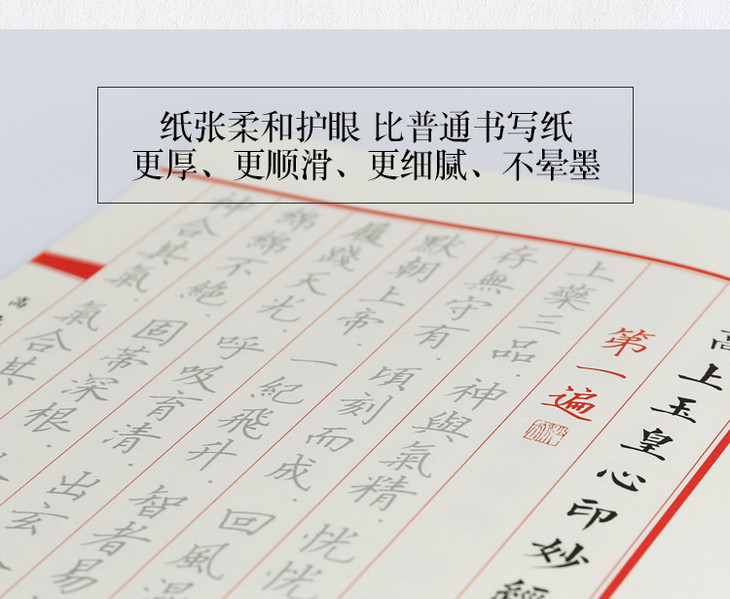 纸张柔和护眼 比普通书写纸
更厚、更顺滑、更细腻、不晕墨
高上玉皇心印妙經
第一遍
上藥三品.神與氣精.恍恍
存無守有.頃刻而成.回風混
默朝上帝.一紀飛升.智者易
履踐天光.呼吸育清.出玄
綿綿不絕.固蒂深根.
神合其氣.氣合其